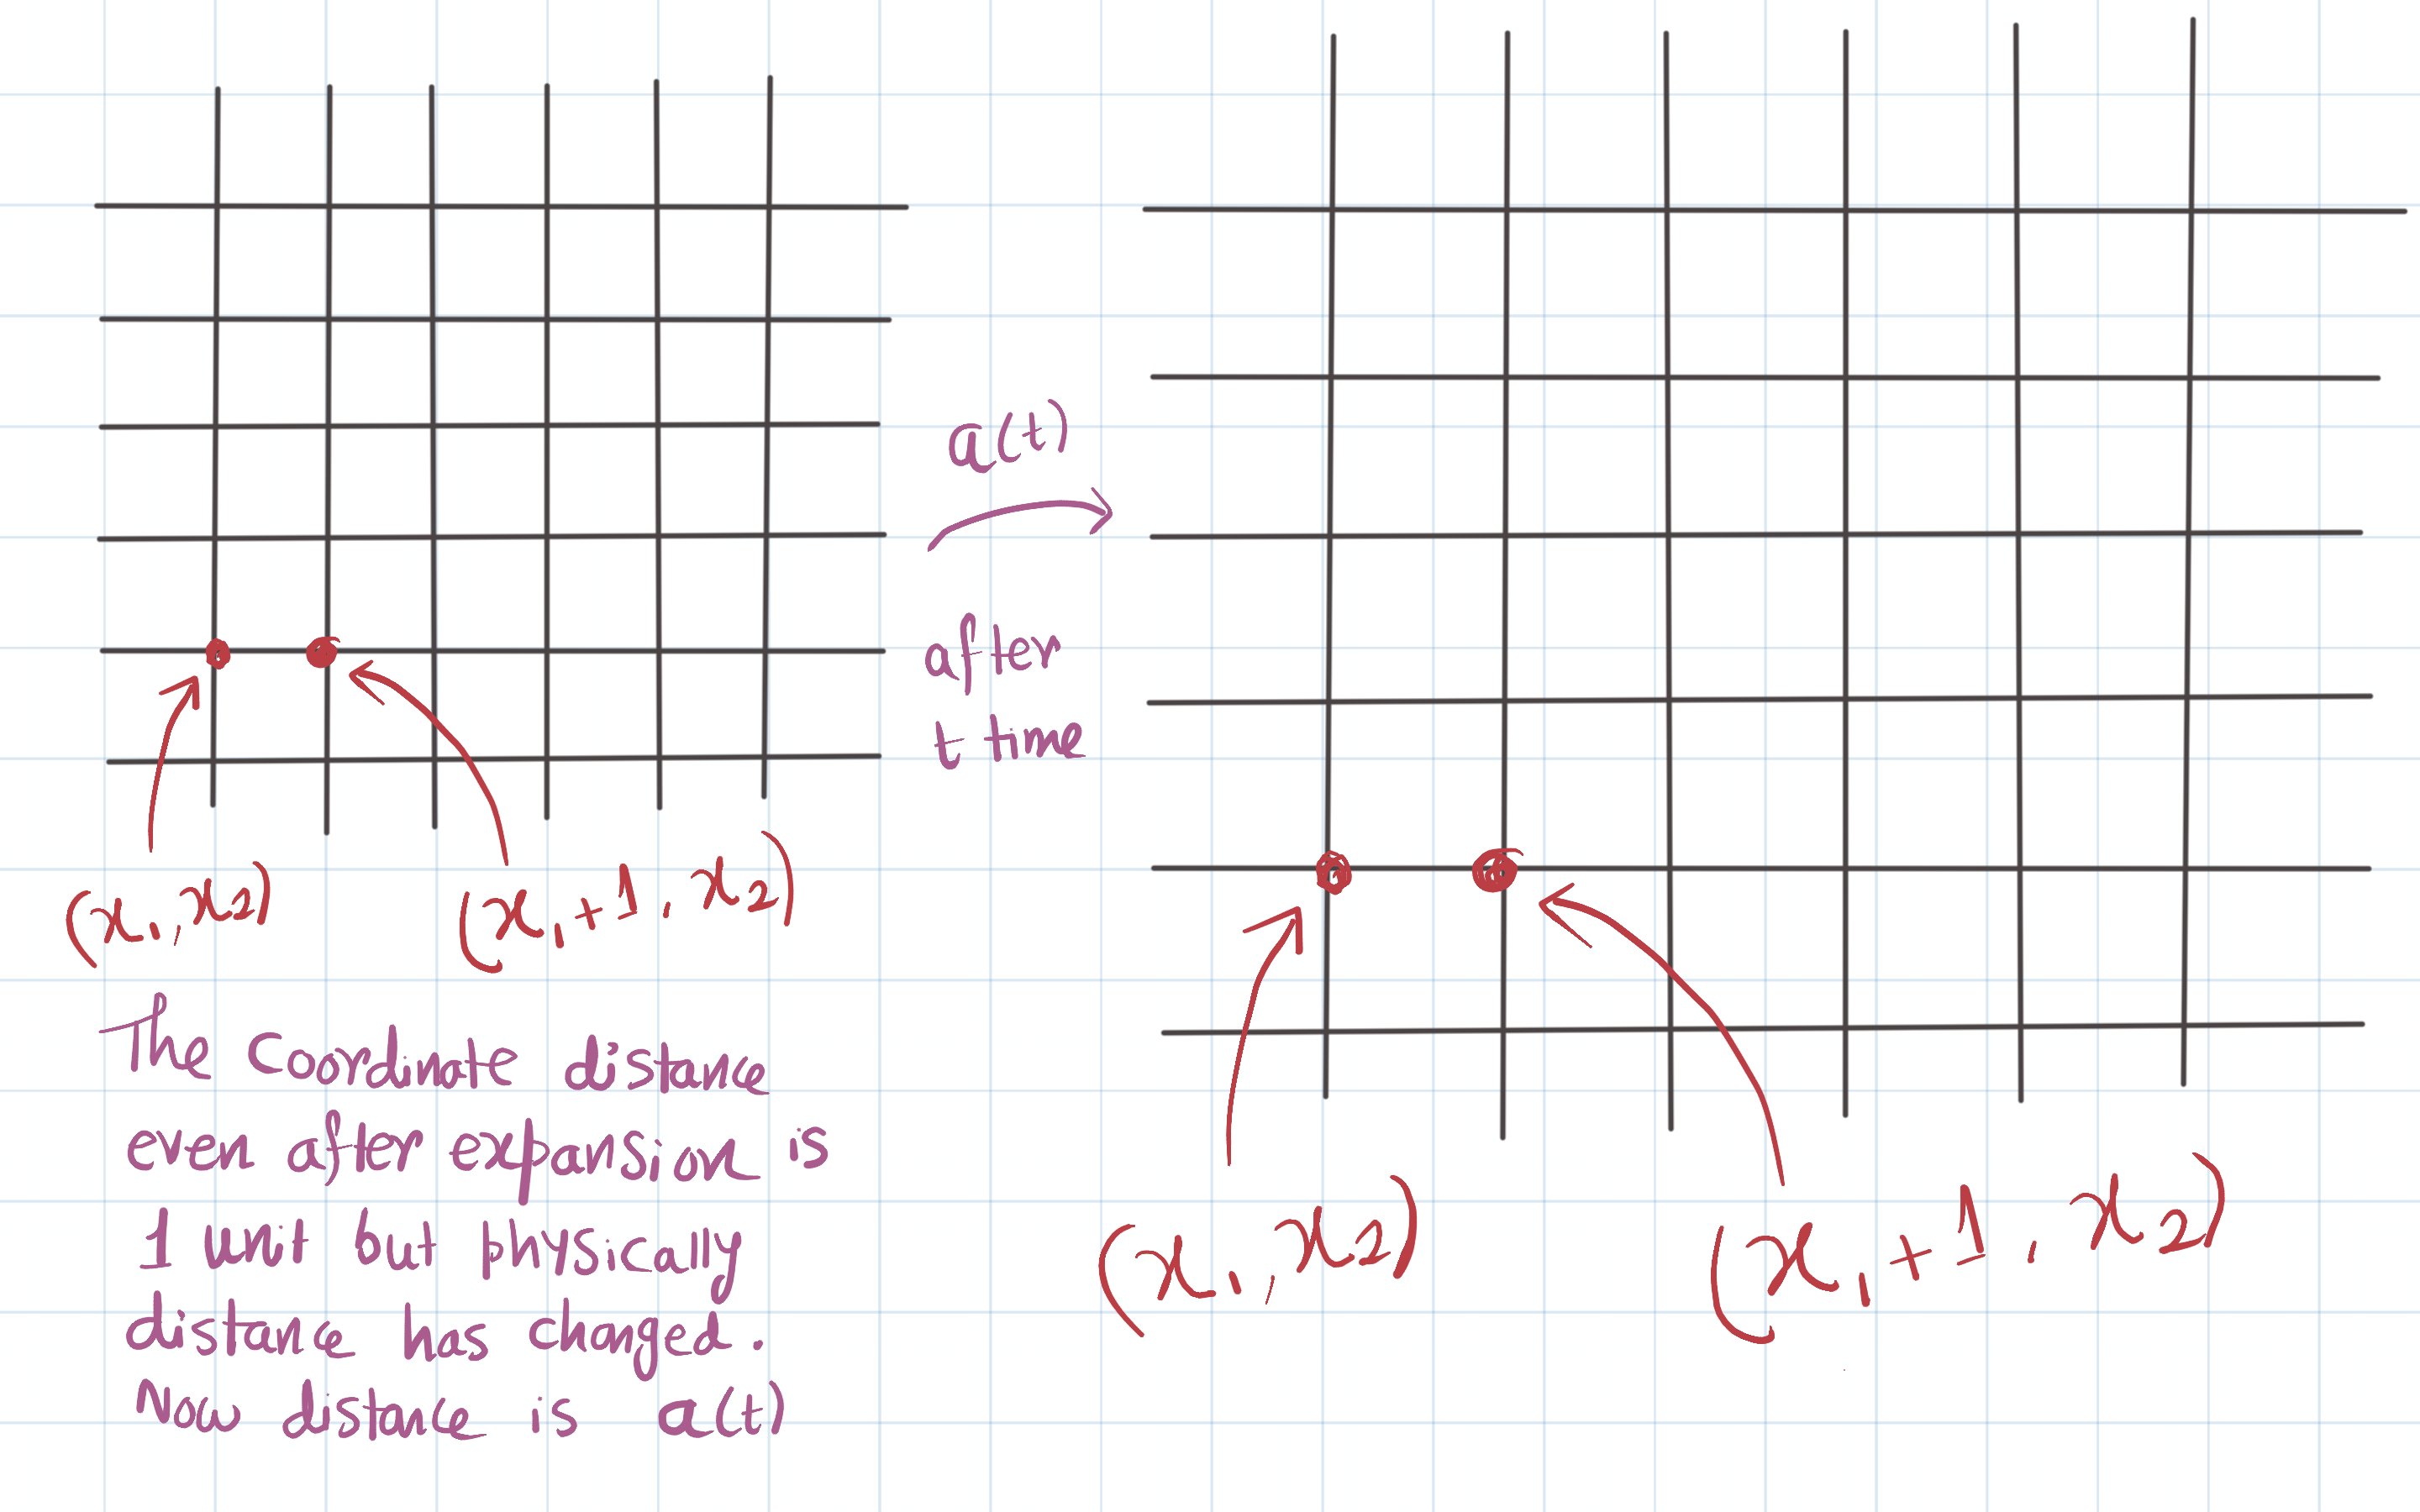 a(t)
after
t time
(x₁, x₂)
(x₁+1, x₂)
The coordinate distance
even after expansion is
1 unit but physically
distance has changed.
Now distance is a(t)
(x₁, x₂)
(x₁+1, x₂)